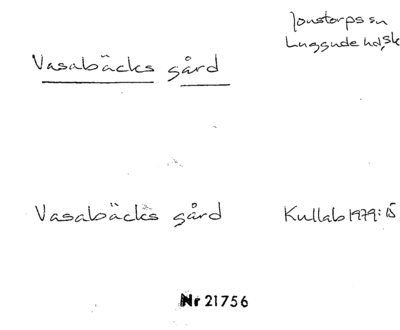 Jonstorps sn
Luggude hd, Sk
Vasabäcks gård
Vasabäcks gård
Kullab 1979:15
Nr 21756